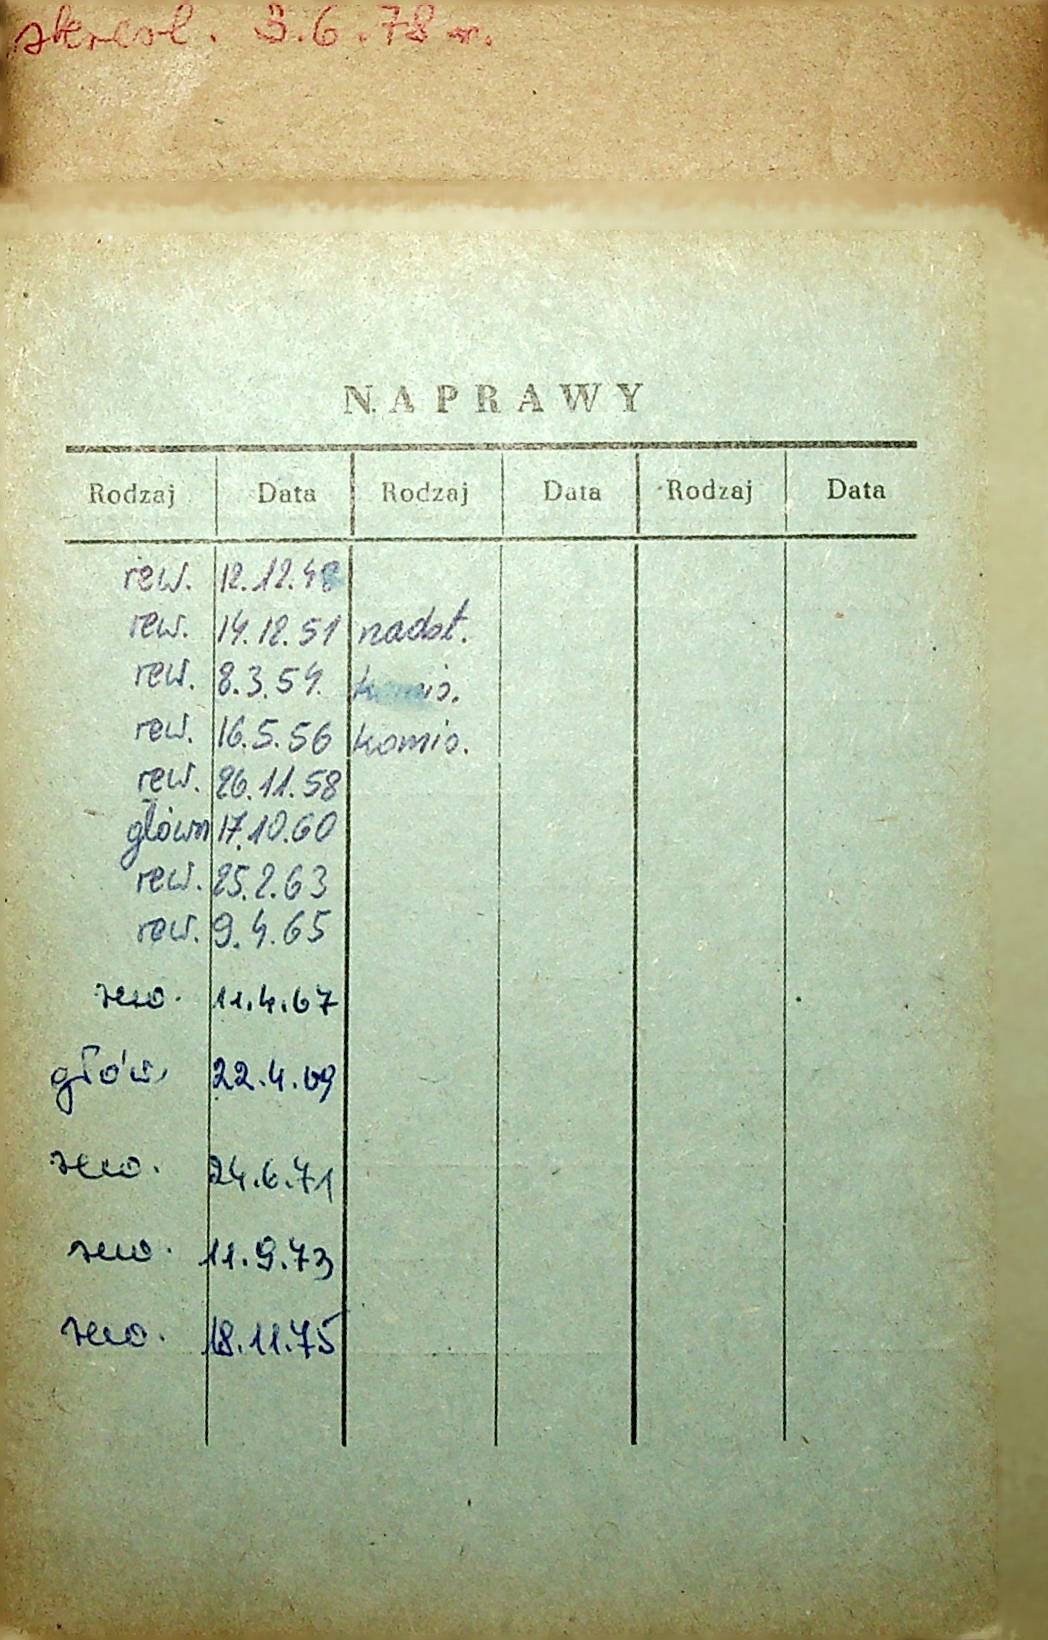 skreśl. 3.6.78 r.
NAPRAWY
Rodzaj Data Rodzaj Data Rodzaj Data
rew. 12.12.48
rew. 14.12.51 nadst.
rew. 8.3.54. komis.
rew. 16.5.56 komis.
rew. 26.11.58
główn 17.10.60
rew. 25.2.63
rew. 9.4.65
rew. 11.4.67
głów. 22.4.69
rew. 24.6.71
rew. 11.9.73
rew. 18.11.75